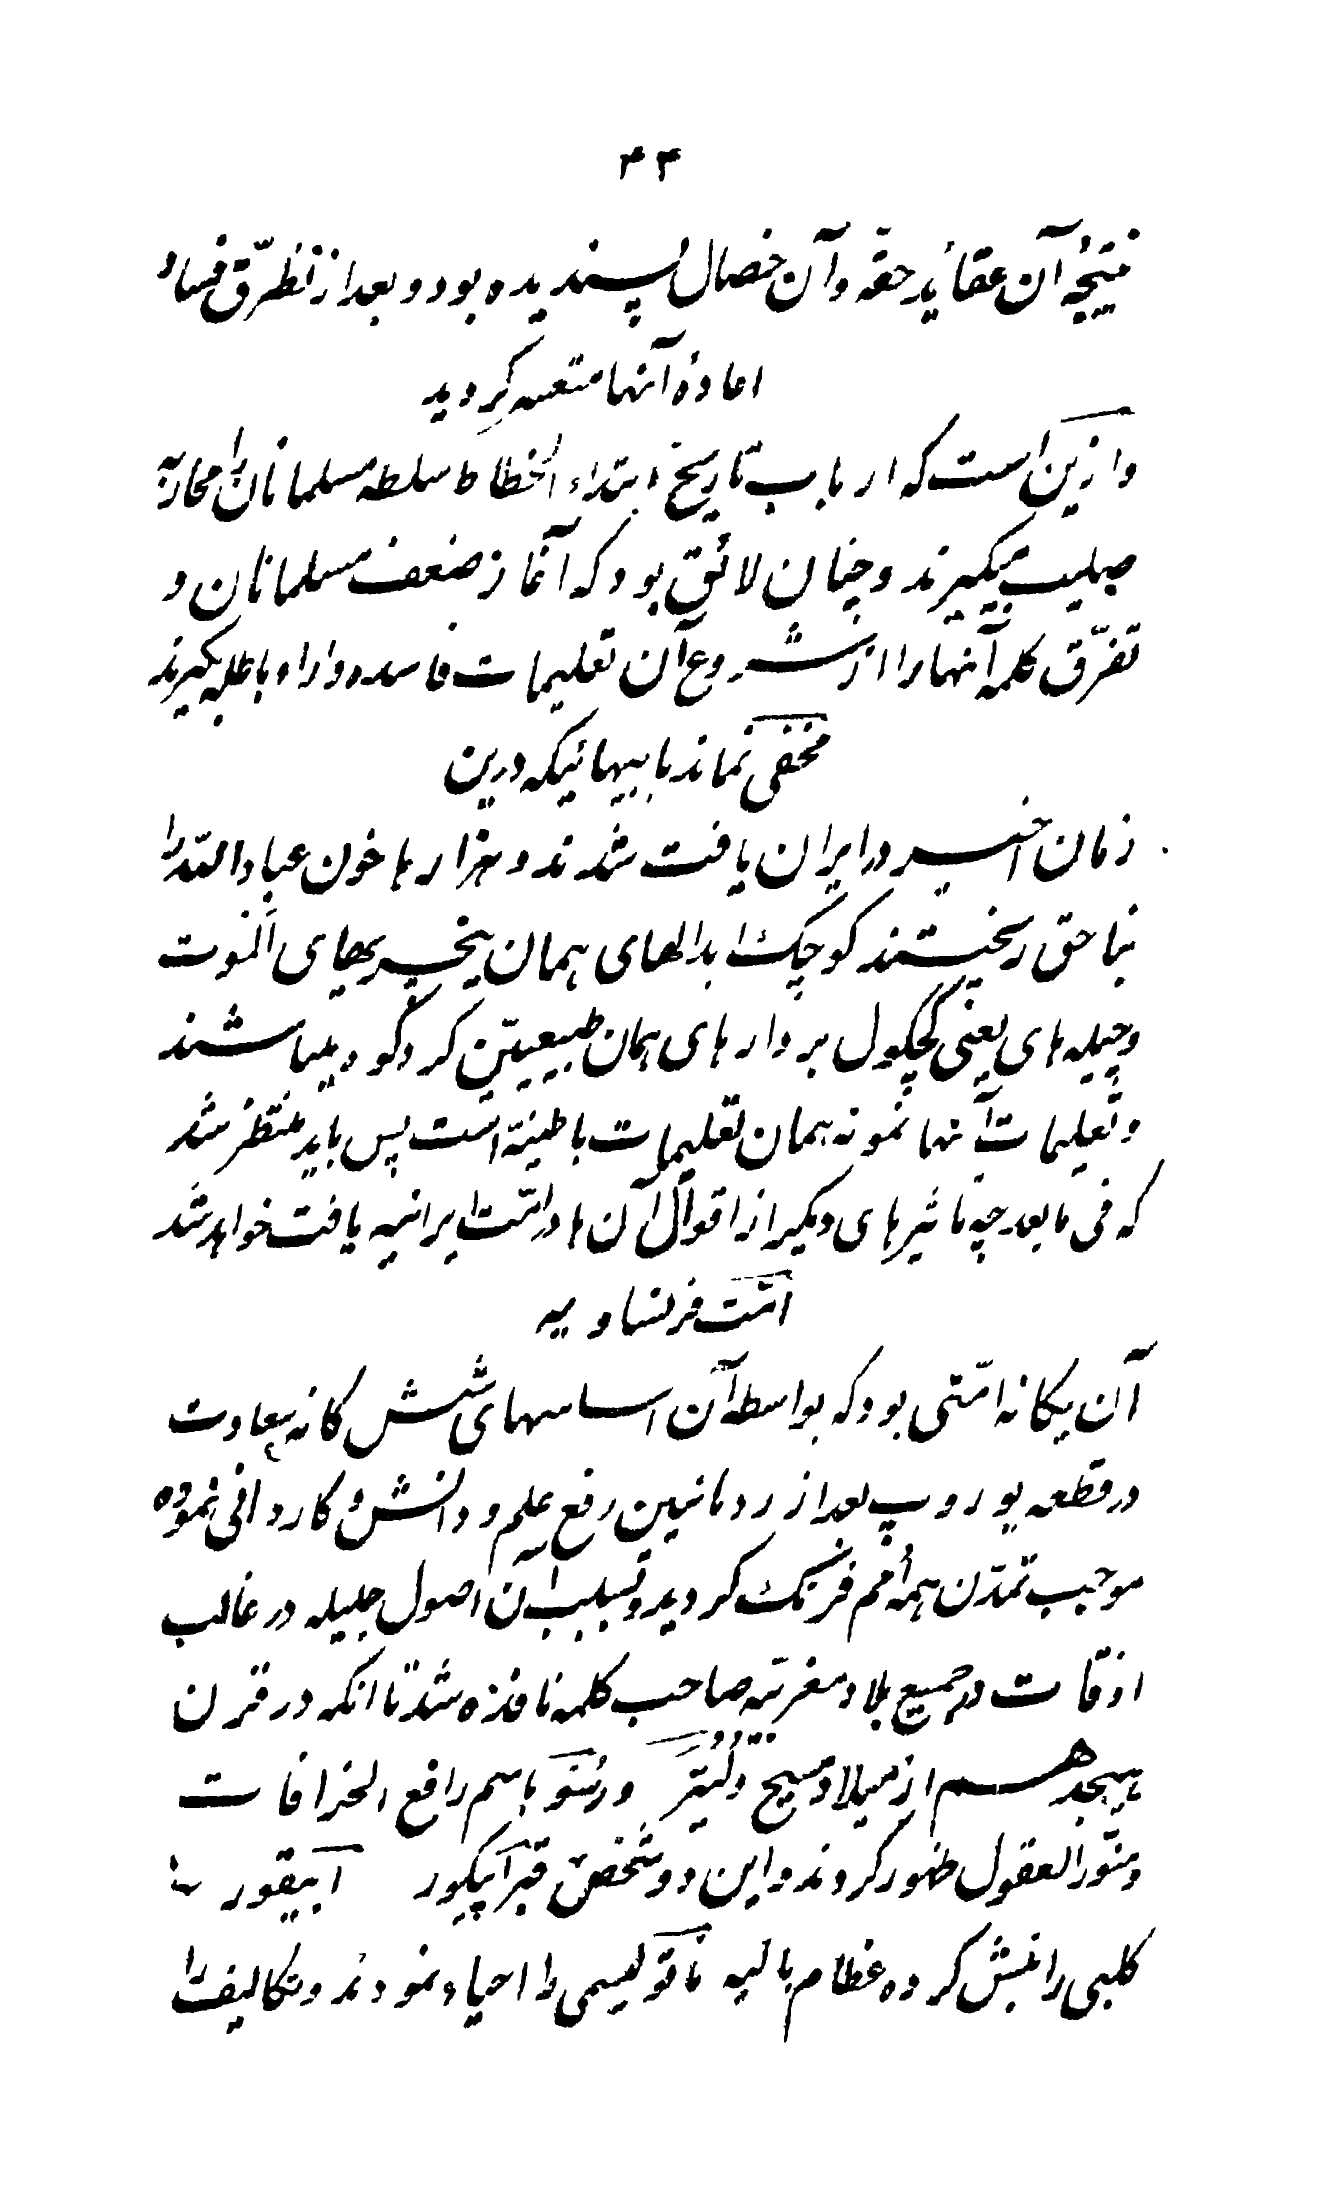 ۴۴
نتیجهٔ آن عقائد حقّه و آن خصال پسندیده بود و بعد از تطرّق فساد
اعادهٔ آنها متعسر گردید
و ازین است که ارباب تاریخ ابتداء انحطاط سلطه مسلمانان را محاربهٔ
صلیب میگیرند و چنان لائق بود که آغاز ضعف مسلمانان و
تفرّق کلمه آنها را از شروع آن تعلیمات فاسده و اراء باطله بگیرند
مخفی نماند بابیهائیکه درین
زمان اخیر در ایران یافت شدند و هزارها خون عباد الله را
بناحق ریختند کوچک ابدالهای همان نیچریهای الموت
و چیله های یعنی کچکول بردارهای همان طبیعیین کردکوه میباشند
و تعلیمات آنها نمونه همان تعلیمات باطنیّه است پس باید منتظر شد
که فی ما بعد چه تاثیرهای دیگر از اقوال آن ها در امّت ایرانیه یافت خواهد شد
امّت فرنساویه
آن یگانه امّتی بود که بواسطه آن اساسهای شش گانه سعادت
در قطعه یوروپ بعد از رومانیین رفع علم و دانش و کاردانی نموده
موجب تمدّن همه اُمم فرنگ گردید و بسبب آن اصول جلیله در غالب
اوقات در جمیع بلاد مغربیّه صاحب کلمه نافذه شد تا انکه در قرن
هیجدهم از میلاد مسیح وُلْتیر و رُسّو باسم رافع الخرافات
و منوّر العقول ظهور کردند و این دو شخص قبر اپیکور ابیقور
کلبی را نبش کرده عظام بالیه ناتورلیسمی را احیاء نمودند و تکالیف را